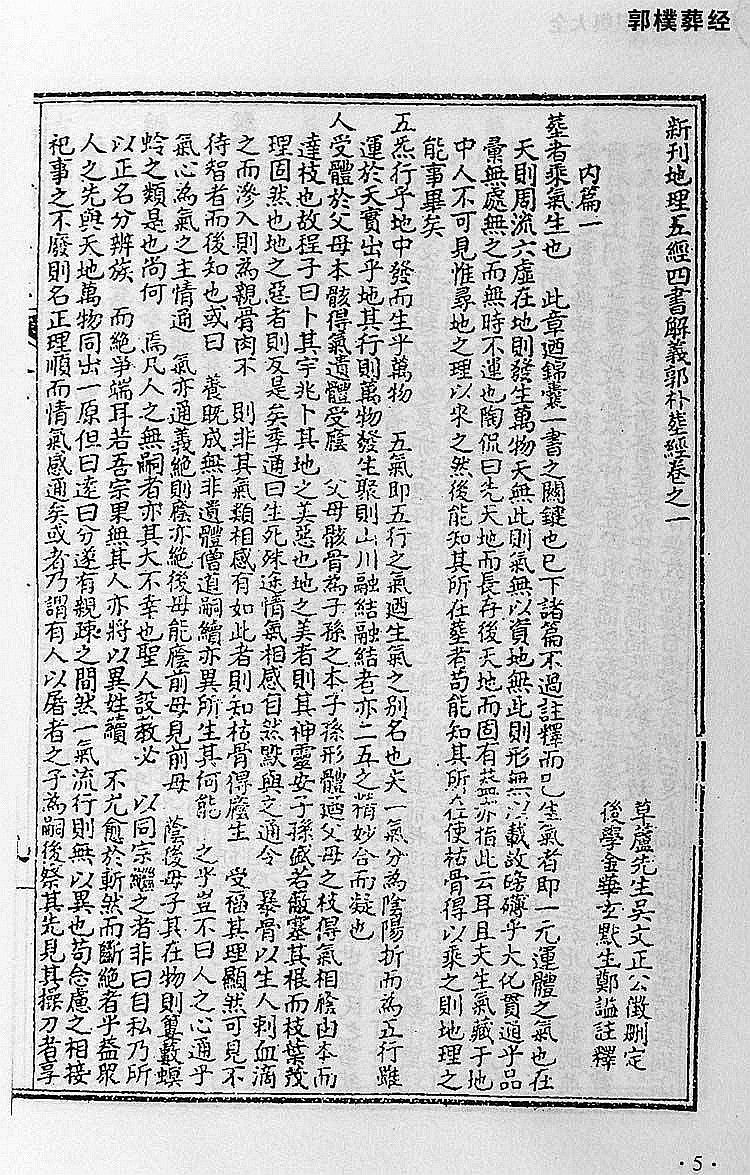 郭樸葬经
新刊地理五經四書解義郭朴葬經卷之一
草蘆先生吳文正公澂刪定
後學金華玄默生鄭謐註釋
内篇一
葬者乘氣生也 此章廼錦囊一書之關鍵也已下諸篇不過註釋而已生氣者即一元運體之氣也在
天則周流六虛在地則發生萬物天無此則氣無以資地無此則形無以載故磅礴乎大化貫通乎品
彙無處無之而無時不運也陶侃曰先天地而長存後天地而固有蓋亦指此云耳且夫生氣藏于地
中人不可見惟尋地之理以求之然後能知其所在葬者苟能知其所在使枯骨得以乘之則地理之
能事畢矣
五炁行乎地中發而生乎萬物 五氣即五行之氣廼生氣之別名也夫一氣分為陰陽折而為五行雖
運於天實出乎地其行則萬物發生聚則山川融結融結者亦二五之精妙合而凝也
人受體於父母本骸得氣遺體受廕 父母骸骨為子孫之本子孫形體廼父母之枝得氣相廕由本而
達枝也故程子曰卜其宇兆卜其地之美惡也地之美者則其神靈安子孫盛若敝塞其根而枝葉茂
理固然也地之惡者則反是矣季通曰生死殊途情氣相感自然默與之通今 暴骨以生人刺血滴
之而滲入則為親骨肉不 則非其氣類相感有如此者則知枯骨得廕生 受極其理顯然可見不
待智者而後知也或曰 養既成無非遺體僧道嗣續亦異所生其何能 之乎豈不曰人之心通乎
氣心為氣之主情通 氣亦通義絕則廕亦絕後母能廕前母見前母 蔭後母子其在物則蔞藪螟
蛉之類是也尚何 焉凡人之無嗣者亦其大不幸也聖人設教必 以同宗繼之者非曰自私乃所
以正名分辨族 而絕爭端耳若吾宗果無其人亦將以異姓續 不尤愈於斬然而斷絕者乎蓋眾
人之先與天地萬物同出一原但曰遠曰分遂有親疎之間然一氣流行則無以異也苟念慮之相接
祀事之不廢則名正理順而情氣感通矣或者乃謂有人以屠者之子為嗣後祭其先見其操刀者享
·5·